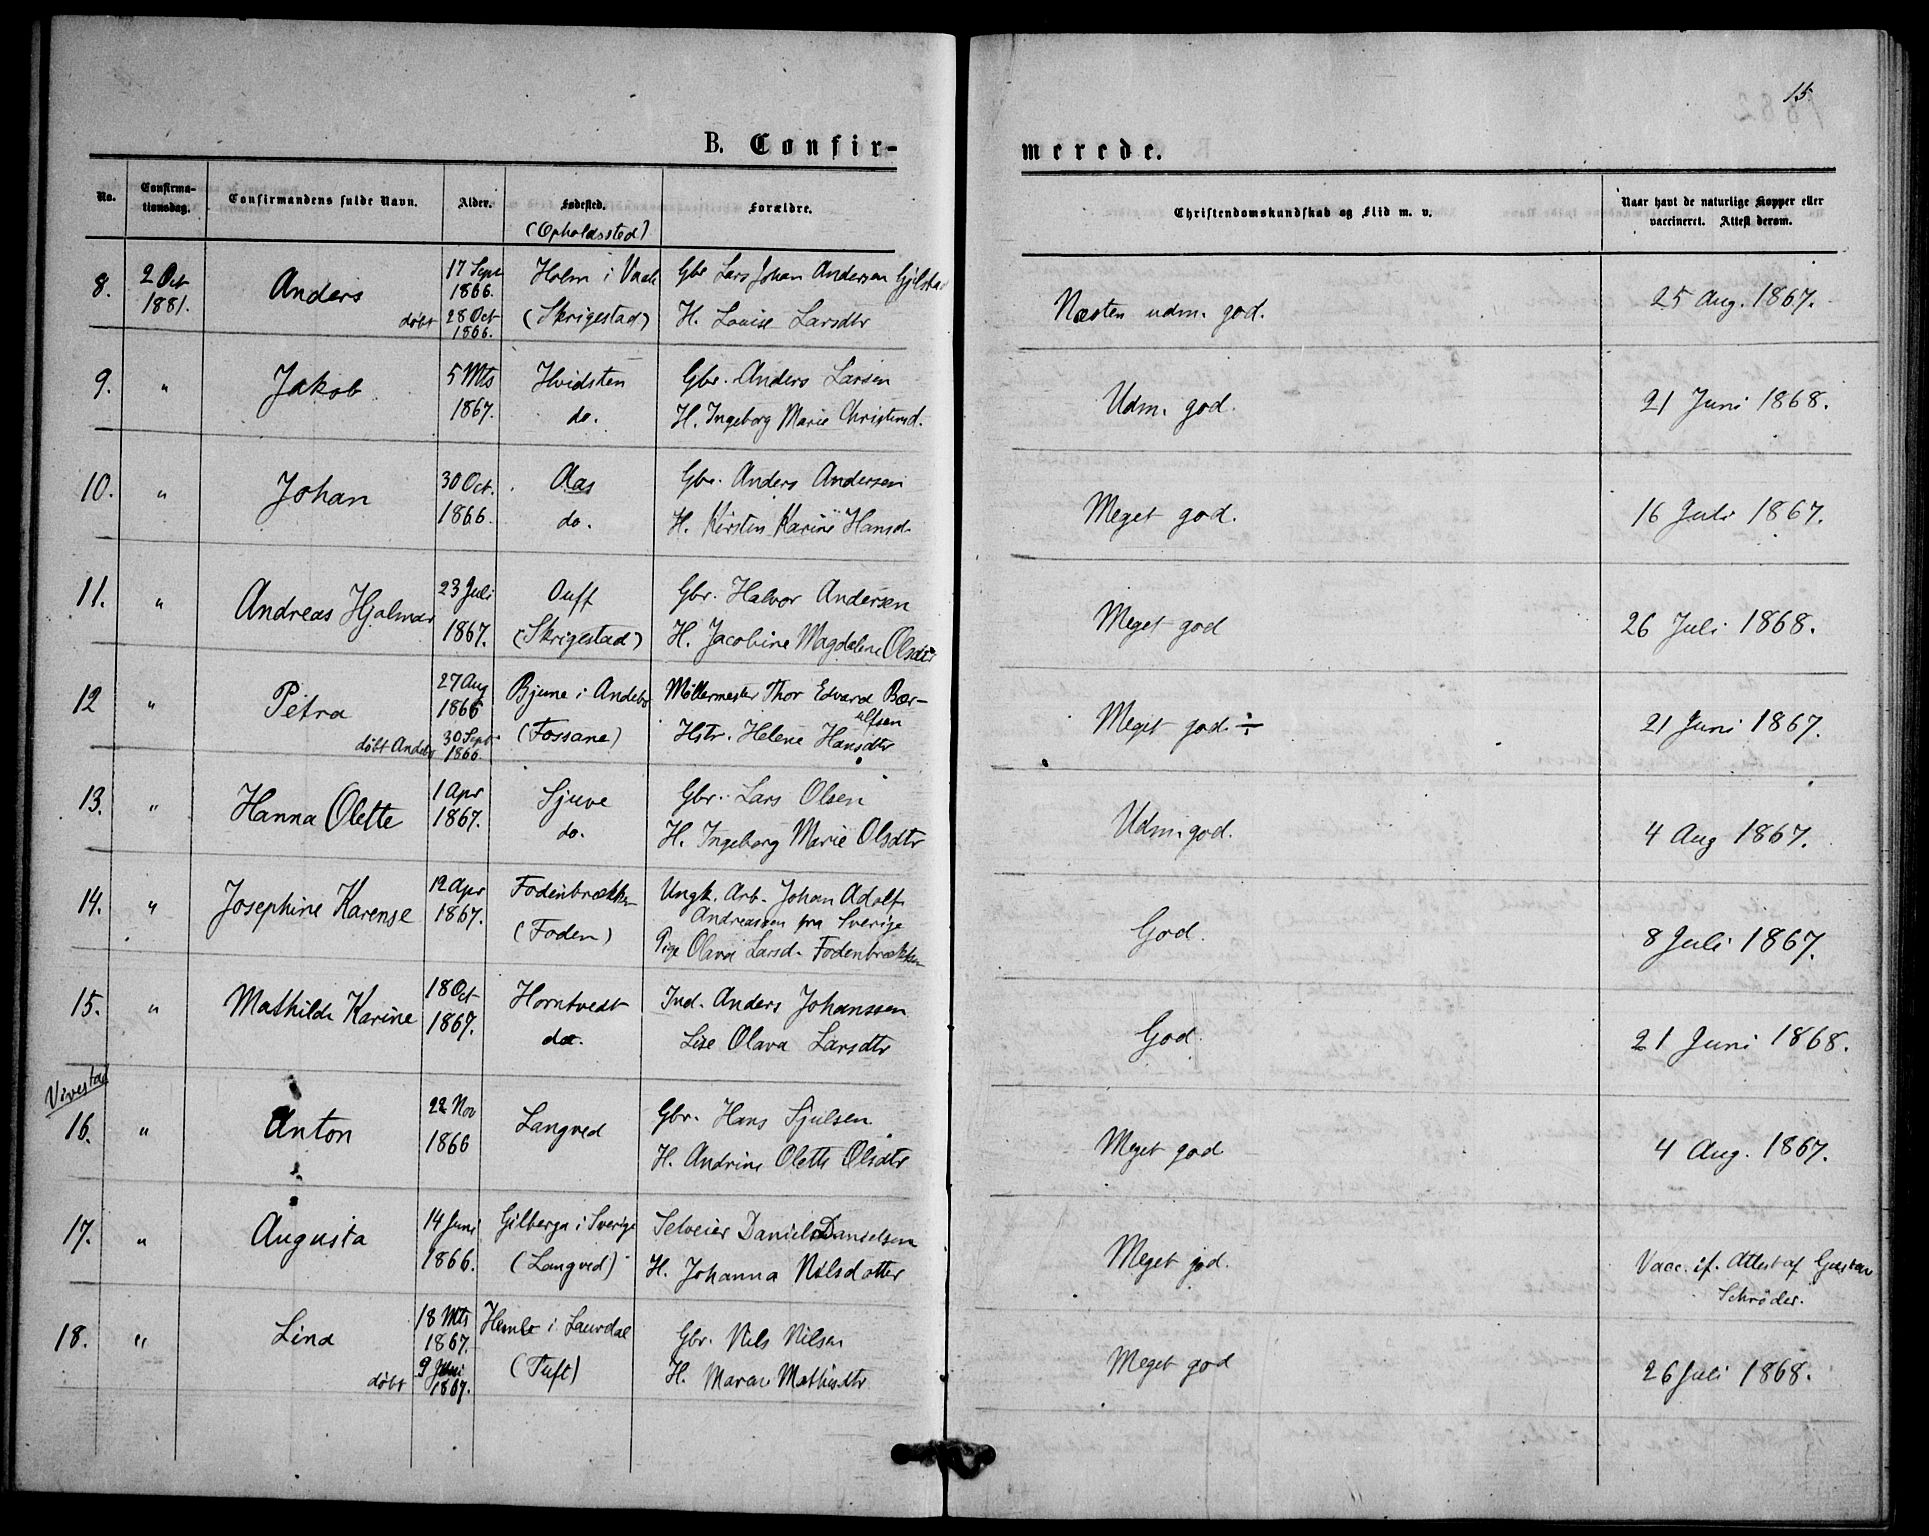 15
B. Confirmerede.
No. Confirmationsdag. Confirmandens fulde Navn. Alder. Fødested. Forældre. Christendomskundskab og Flid m. v. Naar havt de naturlige Kopper eller vaccineret. Attest derom.
(Opholdssted)
8. 2 Oct 1881. Anders 17 Sept 1866. døbt 28 Oct 1866. Holm i Vaale (Skrigestad) Gbr Lars Johan Andersen Gjelstad H. Louise Larsdtr Næsten udm. god. 25 Aug. 1867.
9. " Jakob 5 Mts 1867. Hvidsten do. Gbr. Anders Larsen H. Ingeborg Marie Christensd. Udm. god. 21 Juni 1868.
10. " Johan 30 Oct. 1866. Aas do. Gbr. Anders Andersen H. Kirsten Karine Hansd. Meget god. 16 Juli 1867.
11. " Andreas Hjalmar 23 Juli 1867. (Skrigestad) Gbr. Halvor Andersen H. Jacobine Magdalene Olsdtr Meget god 26 Juli 1868.
12 " Petra 27 Aug 1866 døbt Andebo 30 Sept. 1866. Bjune i Andebo (Fossane) Møllermester Thor Edvard Berulfsen Hstr. Helene Hansdtr Meget god ÷ 21 Juni 1867.
13. " Hanna Olette 1 Apr 1867. Sjuve do. Gbr. Lars Olsen H. Ingeborg Marie Olsdtr Udm. god. 4 Aug 1867.
14. " Josephine Karense 12 Apr 1867. Fodenbrækken (Foden) Ungk. Arb. Johan Adolf Andreassen fra Sverige Pige Olava Larsd. Fodenbrækken God. 8 Juli 1867.
15. " Mathilde Karine 18 Oct 1867. Horntvedt do. Ind. Anders Johanssen Lise Olava Larsdtr God. 21 Juni 1868.
Vivestad
16. " Anton 22 Nov 1866 Langved Gbr. Hans Sjulsen H. Andrine Olette Olsdtr Meget god 4 Aug. 1867.
17. " Augusta 14 Juni 1866. Gilberga i Sverige (Langved) Selveier Daniel Danielsen H. Johanna Nilsdotter Meget god. Vacc. if. Attest af Gustav Schrøder.
18. " Lina 18 Mts 1867. døbt 9 Juni 1867. i Laurdal (Tuft) Gbr. Nils Nilsen H. Maren Mathisdtr Meget god 26 Juli 1868.